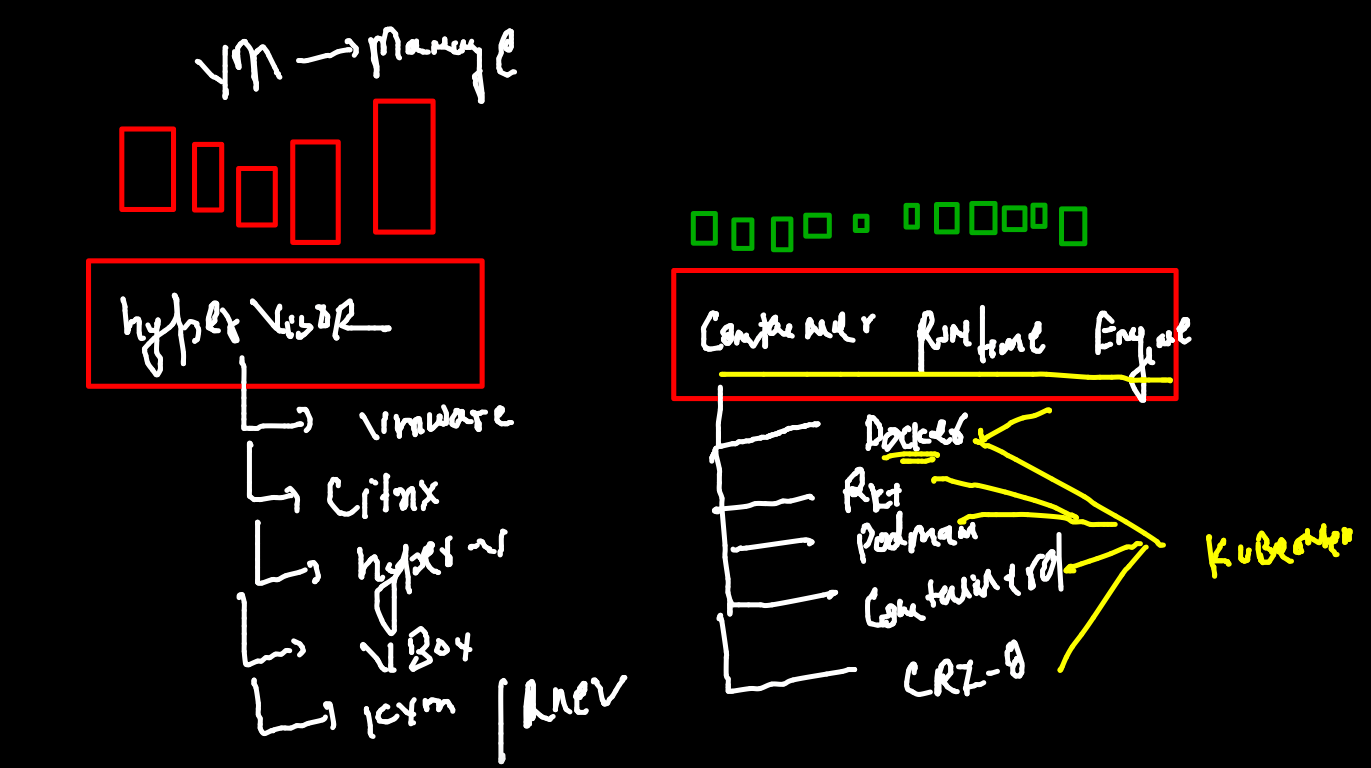 VM → Manage
hyper VisoR
Vmware
Citrix
hyper-v
VBox
KVM | RHEV
Container Runtime Engine
Docker
Rkt
Podman
Containerd
CRI-O
KuBernetes